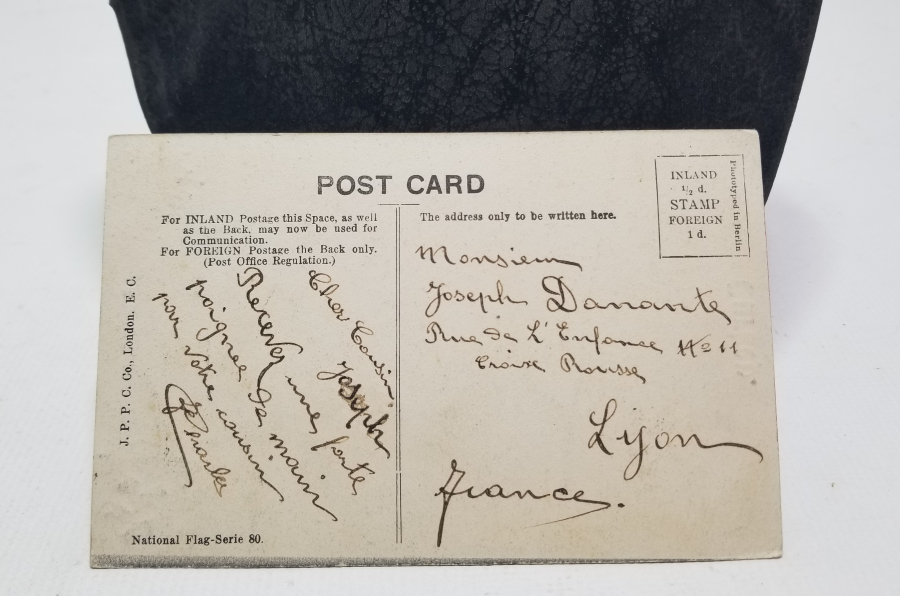 POST CARD
For INLAND Postage this Space, as well
as the Back, may now be used for
Communication.
For FOREIGN Postage the Back only.
(Post Office Regulation.)
The address only to be written here.
INLAND
½ d.
STAMP
FOREIGN
1 d.
Phototyped in Berlin
J. P. P. C. Co., London. E. C.
Cher Cousin
Joseph
Recevez une forte
poignee de main
pour votre cousin
Charles
Monsieur
Joseph Danante
Rue de L'Enfance No 11
Croix Rousse
Lyon
France.
National Flag-Serie 80.